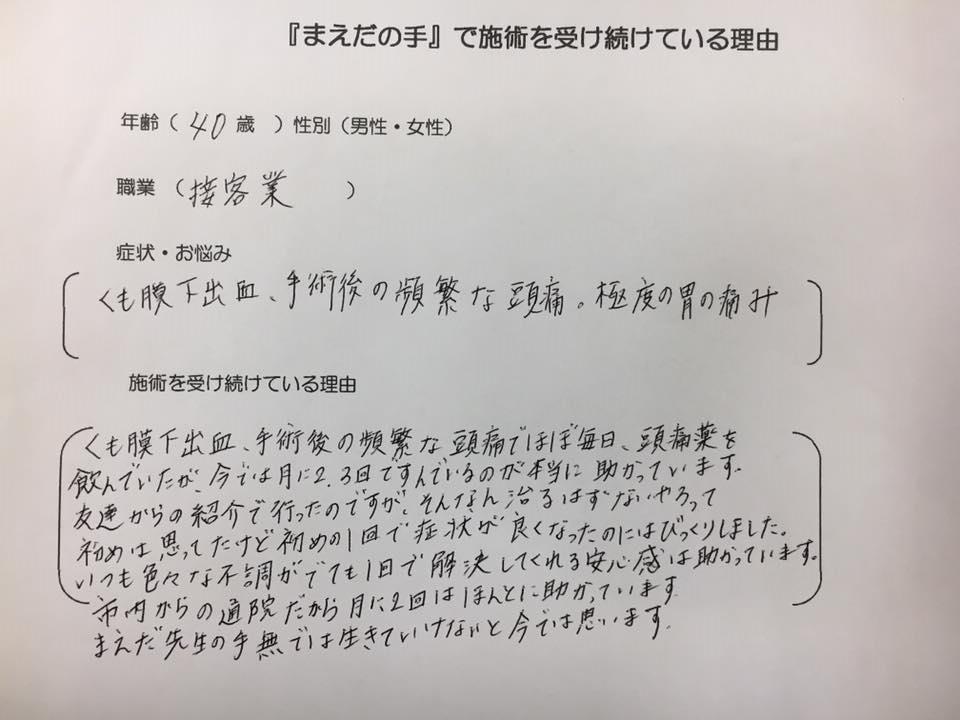 『まえだの手』で施術を受け続けている理由
年齢（ 40 歳 ）性別（男性・女性）
職業 （接客業 ）
症状・お悩み
くも膜下出血、手術後の頻繁な頭痛。極度の胃の痛み
施術を受け続けている理由
くも膜下出血、手術後の頻繁な頭痛でほぼ毎日、頭痛薬を
飲んでいたが、今では月に2.3回ですんでいるのが本当に助かっています。
友達からの紹介で行ったのですが、そんなん治るはずないやろって
初めは思ってたけど初めの1回で症状が良くなったのにはびっくりしました。
いつも色々な不調がでても1回で解決してくれる安心感は助かっています。
市内からの通院だから月に2回はほんとに助かっています。
まえだ先生の手無では生きていけないと今では思います。